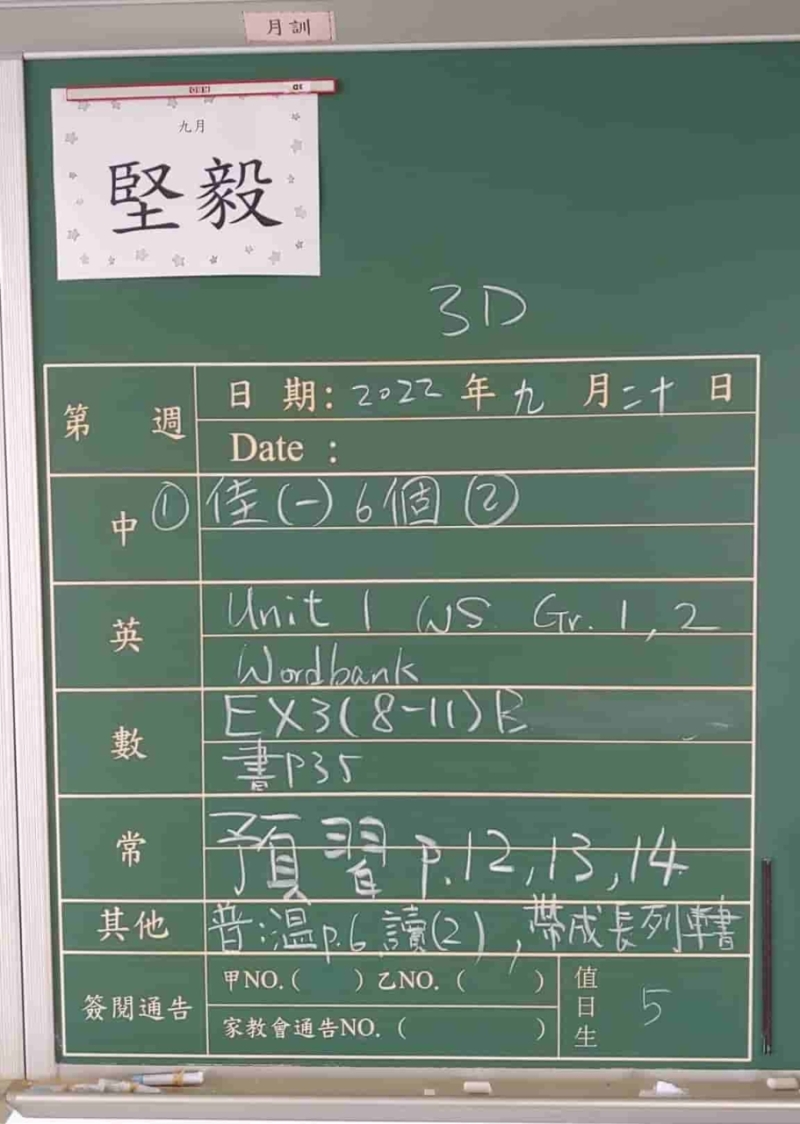 月訓
九月
堅毅
3D
第 週
日 期: 2022 年 九 月 二十 日
Date :
中 ① 佳(一) 6個 ②
英
Unit 1 WS Gr. 1, 2
Wordbank
數
EX3(8-11)B
書P35
常
預習 p.12,13,14
其他
普:溫p.6,讀(2),帶成長列車書
簽閱通告
甲NO.( ) 乙NO. ( )
家教會通告NO. ( )
值日生
5